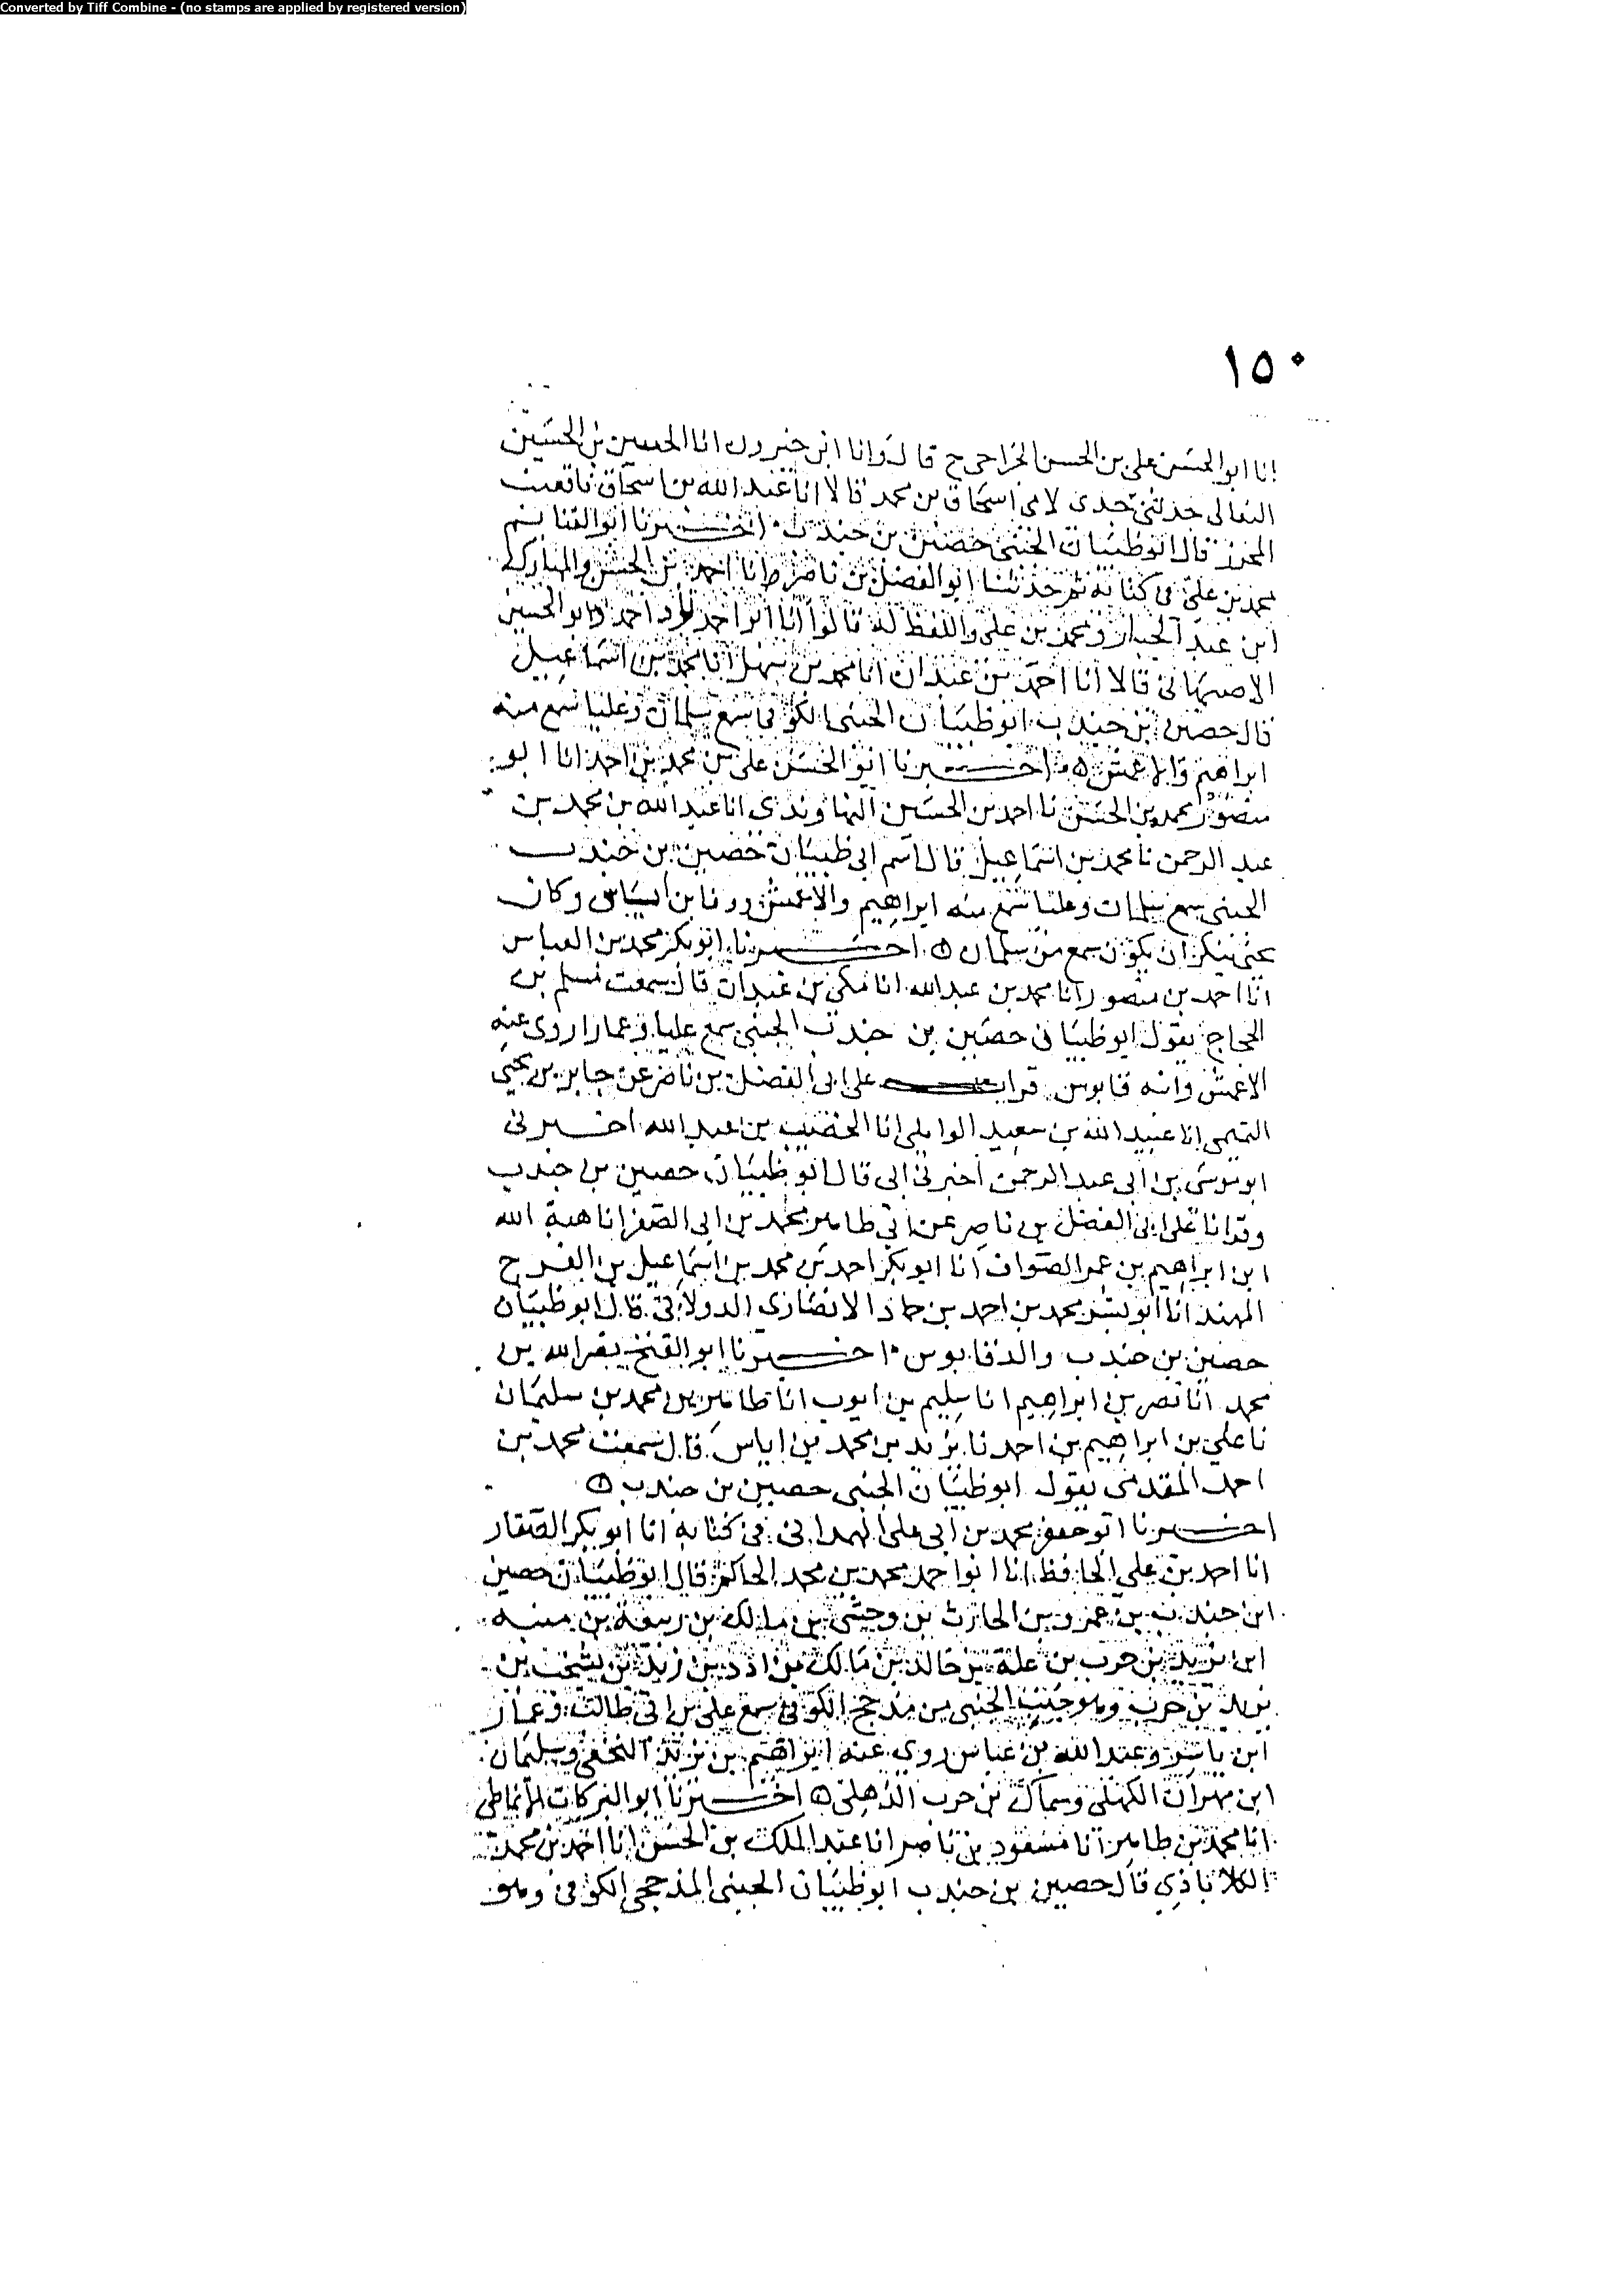 Converted by Tiff Combine - (no stamps are applied by registered version)
١٥٠
انا ابو الحسن علي بن الحسن الجراحي ح قال وانا ابن خيرون انا الحسين بن الحسين
النعالي حدثني جدي لامي اسحاق بن محمد قالا انا عبد الله بن اسحاق نا قعنب
المحرز قال ابو ظبيان الجنبي حصين بن جندب اخبرنا ابو الغنايم
محمد بن علي في كتابه ثم حدثنا ابو الفضل بن ناصر انا احمد بن الحسن والمبارك
ابن عبد الجبار ومحمد بن علي واللفظ له قالوا انا ابو احمد زاد احمد وابو الحسين
الاصبهاني قالا انا احمد بن عبدان انا محمد بن سهل انا محمد بن اسماعيل
قال حصين ابن جندب ابو ظبيان الجنبي الكوفي سمع سلمان وعليا سمع منه
ابراهيم والاعمش اخبرنا ابو الحسن علي بن محمد بن احمد انا ابو
منصور محمد بن الحسن نا احمد بن الحسين النهاوندي انا عبد الله بن محمد بن
عبد الرحمن نا محمد بن اسماعيل قال اسم ابي ظبيان حصين بن جندب
الجنبي سمع سلمان وعليا سمع منه ابراهيم والاعمش وكان
يحيى ينكر ان يكون سمع من سلمان اخبرنا ابو بكر محمد بن العباس
انا احمد بن منصور انا محمد بن عبد الله انا مكي بن عبدان قال سمعت مسلم بن
الحجاج يقول ابو ظبيان حصين بن جندب الجنبي سمع عليا وعمارا روى عنه
الاعمش وابنه قابوس قرات على ابي الفضل بن ناصر عن جابر بن يحيى
التميمي انا عبيد الله بن سعيد الوايلي انا الخصيب بن عبد الله اخبرني
ابو موسى بن ابي عبد الرحمن اخبرني ابي قال ابو ظبيان حصين بن جندب
وقرانا على ابي الفضل بن ناصر عن ابي طاهر محمد بن ابي الصقر انا هبة الله
ابن ابراهيم بن عمر الصواف انا ابو بكر احمد بن محمد بن اسماعيل بن الفرج
المهندس انا ابو بشر محمد بن احمد بن حماد الانصاري الدولابي قال ابو ظبيان
حصين بن جندب والد قابوس اخبرنا ابو الفتح نصر الله بن
محمد انا نصر بن ابراهيم انا سليم بن ايوب انا طاهر بن محمد بن سليمان
نا علي بن ابراهيم بن احمد نا يزيد بن محمد بن اياس قال سمعت محمد بن
احمد المقدمي يقول ابو ظبيان الجنبي حصين بن جندب
اخبرنا ابو جعفر محمد بن ابي علي الهمداني في كتابه انا ابو بكر الصفار
انا احمد بن علي الحافظ انا ابو احمد محمد بن محمد الحاكم قال ابو ظبيان حصين
ابن جندب بن عمرو بن الحارث بن وحشي بن مالك بن ربيعة بن منبه
ابن يزيد بن حرب بن علة بن خالد بن مالك بن ادد بن زيد بن يشجب بن
يزيد بن حرب وهو جنب الجنبي من مذحج الكوفي سمع علي بن ابي طالب وعمار
ابن ياسر وعبد الله بن عباس روى عنه ابراهيم بن يزيد النخعي وسليمان
ابن مهران الكهلي وسماك بن حرب الذهلي اخبرنا ابو البركات الانماطي
انا محمد بن طاهر انا مسعود بن ناصر انا عبد الملك بن الحسن انا احمد بن محمد
الكلاباذي قال حصين بن جندب ابو ظبيان الجنبي المذحجي الكوفي وهو